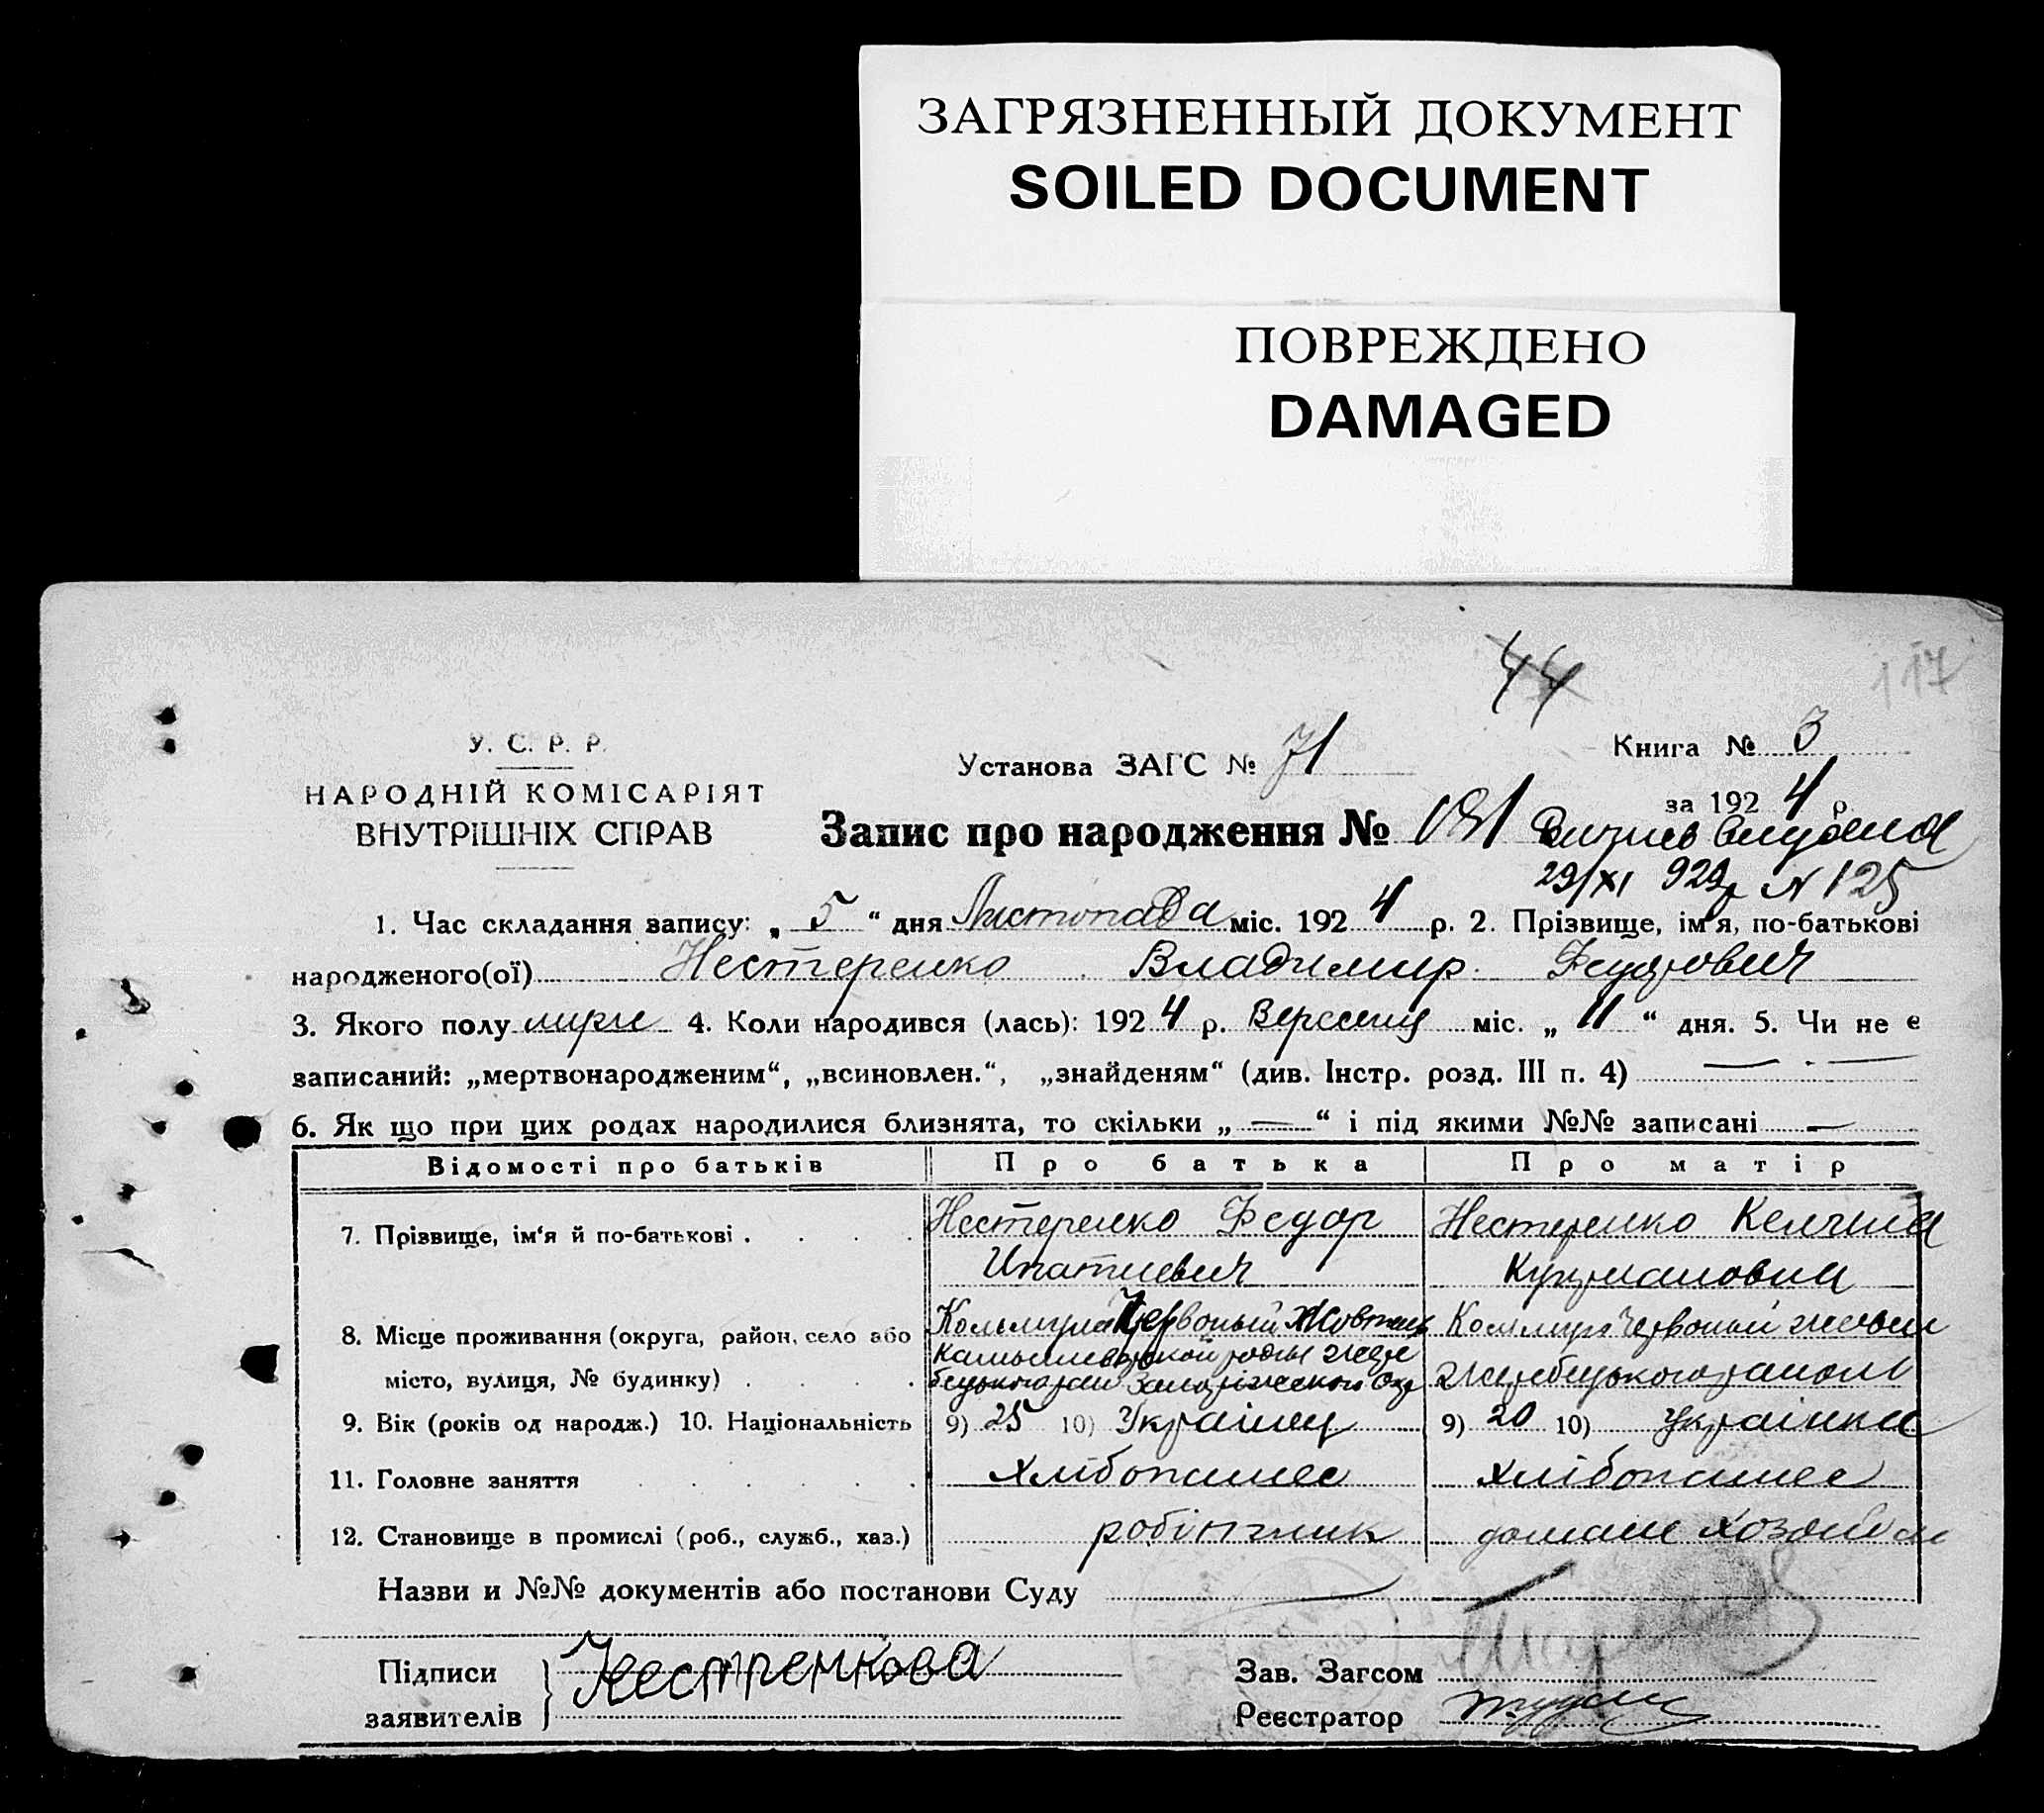 ЗАГРЯЗНЕННЫЙ ДОКУМЕНТ
SOILED DOCUMENT
ПОВРЕЖДЕНО
DAMAGED
44
117
У. С. Р. Р.
НАРОДНІЙ КОМІСАРІЯТ
ВНУТРІШНІХ СПРАВ
Установа ЗАГС № 71
Книга № 3
за 1924 р.
Запис про народження №
29/XI 929р N 125
1. Час складання запису: „ 5 “ дня Листопада міс. 1924 р. 2. Прізвище, ім'я, по-батькові
народженого(ої) Нестеренко Владимир Федорович
3. Якого полу 4. Коли народився (лась): 1924 р. Вересня міс. „ 11 “ дня. 5. Чи не є
записаний: „мертвонародженим“, „всиновлен.“, „знайденям“ (див. Інстр. розд. III п. 4) —
6. Як що при цих родах народилися близнята, то скільки „ — “ і під якими №№ записані —
Відомості про батьків Про батька Про матір
7. Прізвище, ім'я й по-батькові Нестеренко Федор Нестеренко
Ипатиевич
8. Місце проживання (округа, район, село або Червоный Жовтень Червоный
місто, вулиця, № будинку)
9. Вік (років од народж.) 10. Національність 9) 25 10) Українец 9) 20 10) Українка
11. Головне заняття Хлібопашес хлібопашес
12. Становище в промислі (роб., служб., хаз.) робітник домаш хозяйка
Назви и №№ документів або постанови Суду —
Підписи
заявителів
Зав. Загсом
Реєстратор